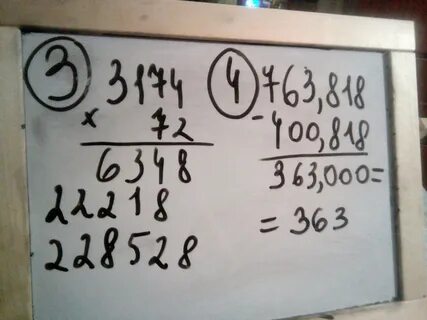 3 3174
× 72
6348
22218
228528
4 763,818
- 400,818
363,000=
= 363